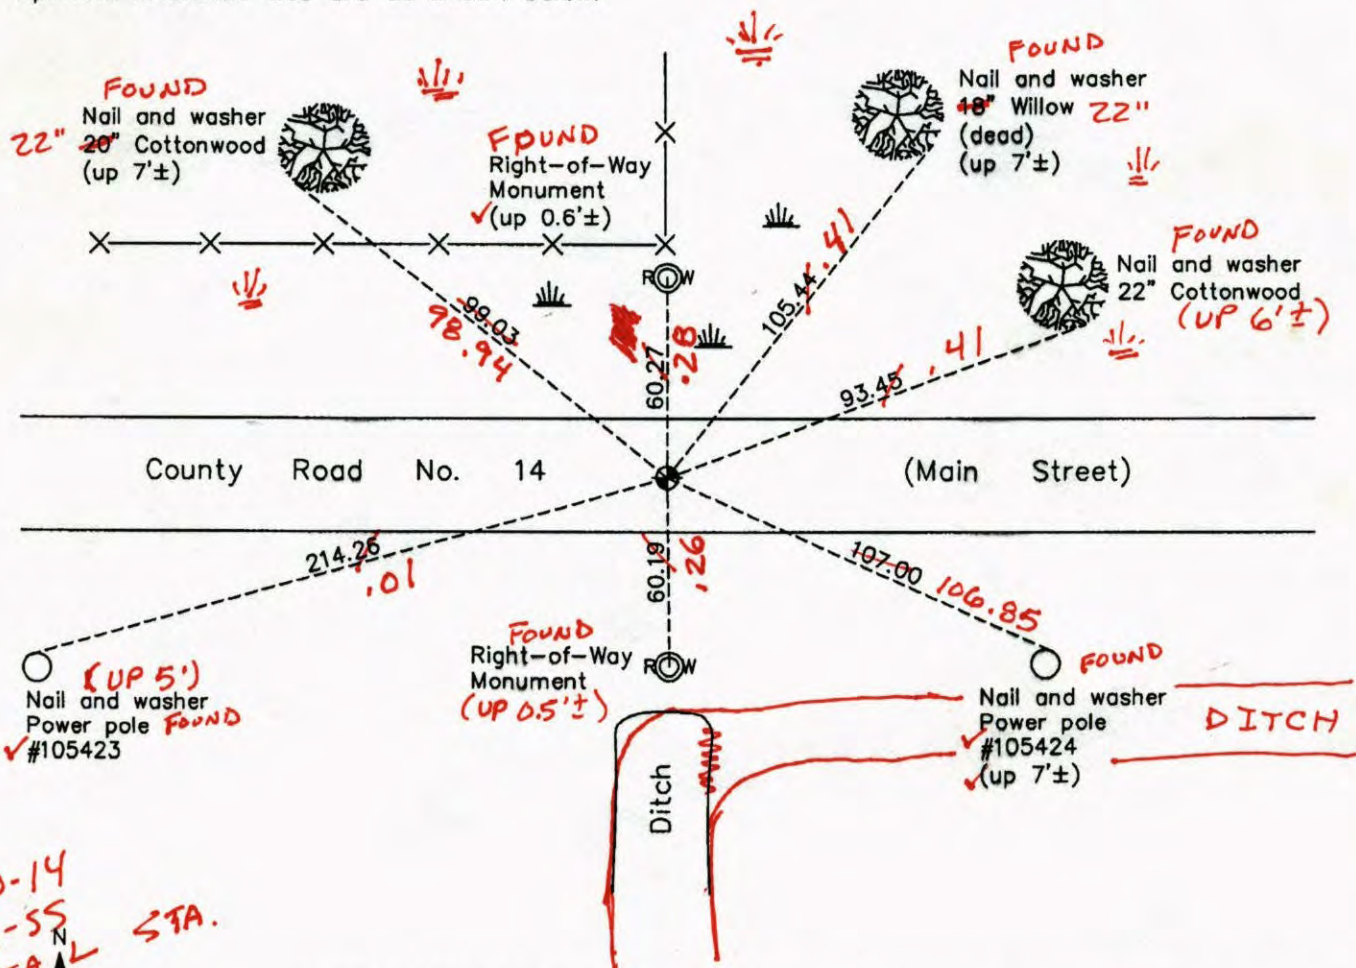 FOUND
Nail and washer
22" 20" Cottonwood
(up 7'±)
FOUND
Right-of-Way
Monument
(up 0.6'±)
FOUND
Nail and washer
18" Willow 22"
(dead)
(up 7'±)
FOUND
Nail and washer
22" Cottonwood
(UP 6'±)
R W
99.03
98.94
60.27
.28
105.44
.41
93.45
.41
County Road No. 14 (Main Street)
214.26
.01
60.19
.26
107.00
106.85
(UP 5')
Nail and washer
Power pole FOUND
#105423
FOUND
Right-of-Way
Monument
(UP 0.5'±)
R W
FOUND
Nail and washer
Power pole
#105424
(up 7'±)
DITCH
Ditch
-14
-55
STA.
N